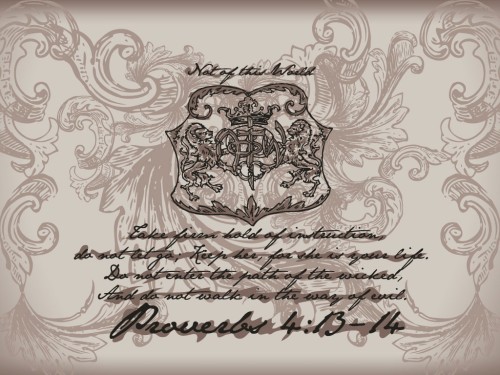 Not of this World
Take firm hold of instruction,
do not let go; Keep her, for she is your life.
Do not enter the path of the wicked,
And do not walk in the way of evil.
Proverbs 4:13-14